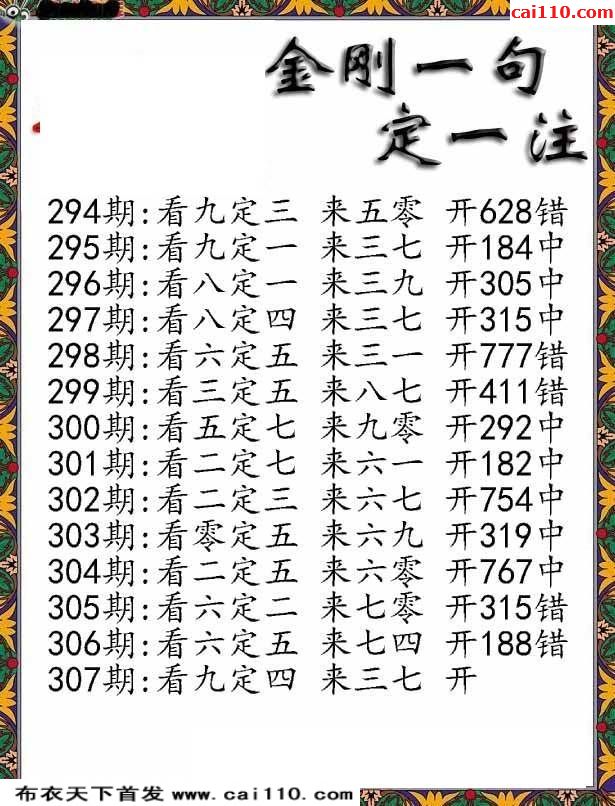 cai110.com
金刚一句
定一注
294期:看九定三 来五零 开628错
295期:看九定一 来三七 开184中
296期:看八定一 来三九 开305中
297期:看八定四 来三七 开315中
298期:看六定五 来三一 开777错
299期:看三定五 来八七 开411错
300期:看五定七 来九零 开292中
301期:看二定七 来六一 开182中
302期:看二定三 来六七 开754中
303期:看零定五 来六九 开319中
304期:看二定五 来六零 开767中
305期:看六定二 来七零 开315错
306期:看六定五 来七四 开188错
307期:看九定四 来三七 开
布衣天下首发 www.cai110.com